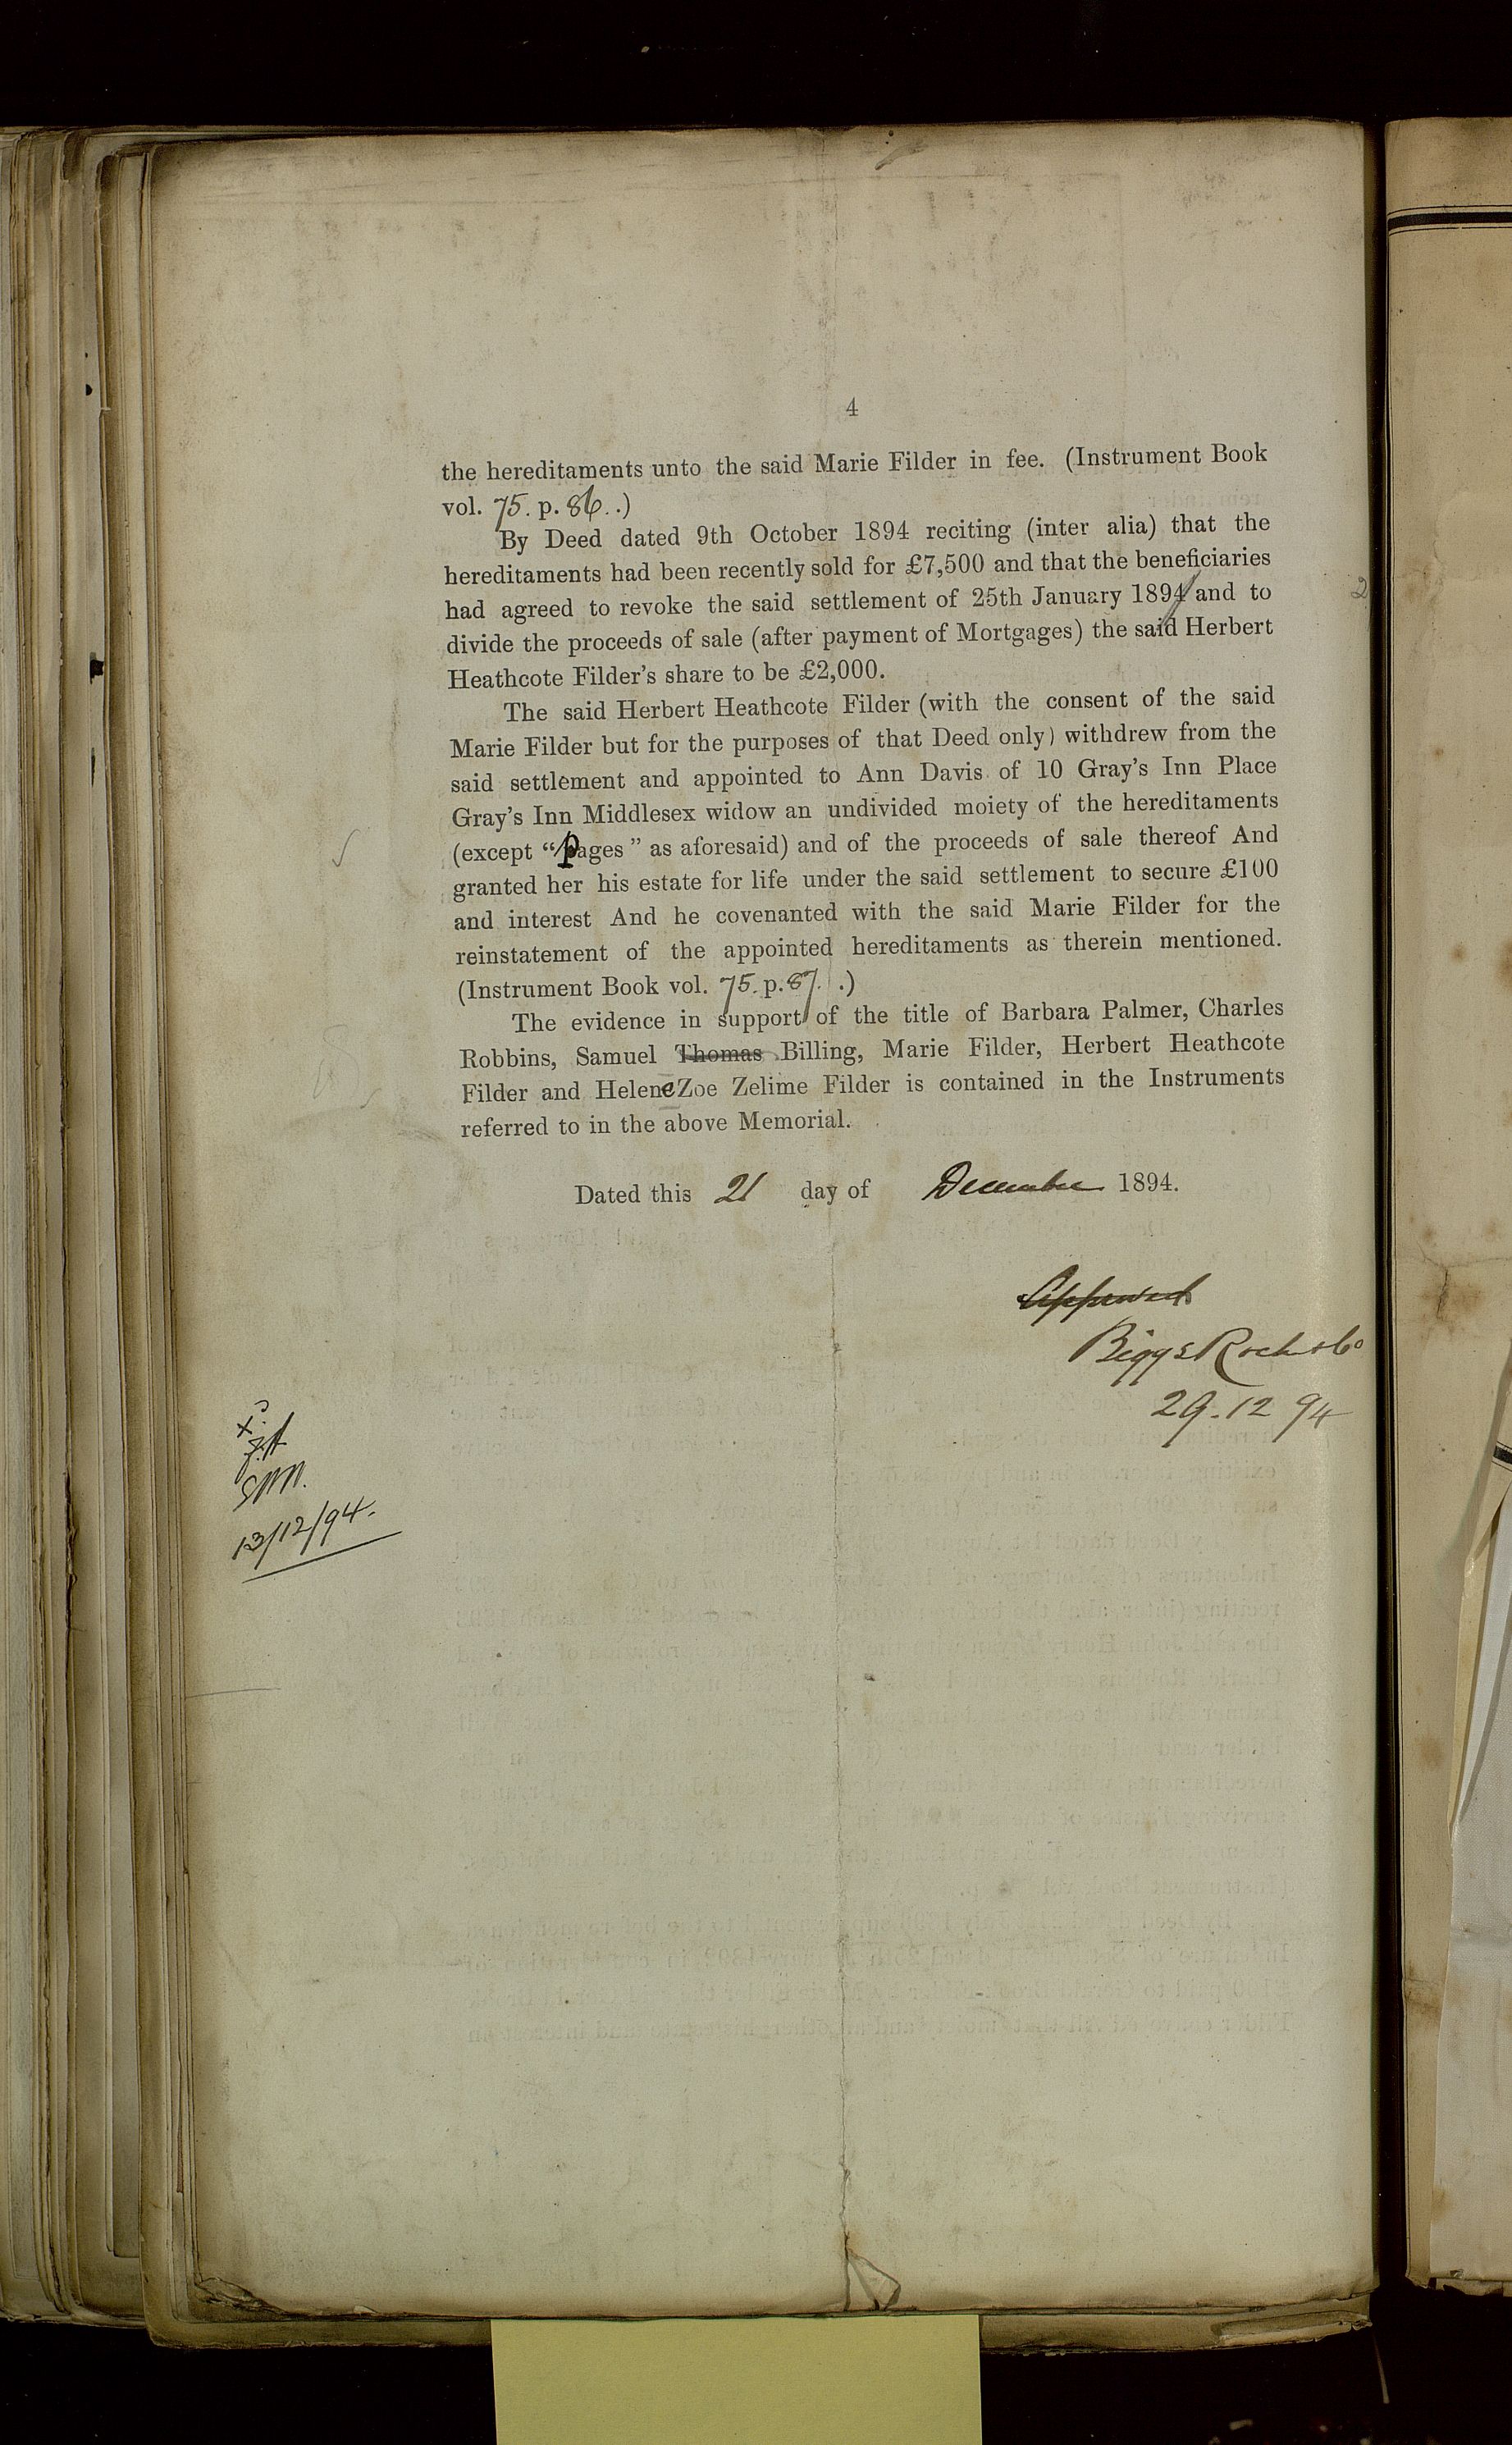 4
the hereditaments unto the said Marie Filder in fee. (Instrument Book
vol. 75. p. 86. .)
By Deed dated 9th October 1894 reciting (inter alia) that the
hereditaments had been recently sold for £7,500 and that the beneficiaries
had agreed to revoke the said settlement of 25th January 1894 and to
2
divide the proceeds of sale (after payment of Mortgages) the said Herbert
Heathcote Filder's share to be £2,000.
The said Herbert Heathcote Filder (with the consent of the said
Marie Filder but for the purposes of that Deed only) withdrew from the
said settlement and appointed to Ann Davis of 10 Gray's Inn Place
Gray's Inn Middlesex widow an undivided moiety of the hereditaments
(except "pages" as aforesaid) and of the proceeds of sale thereof And
granted her his estate for life under the said settlement to secure £100
and interest And he covenanted with the said Marie Filder for the
reinstatement of the appointed hereditaments as therein mentioned.
(Instrument Book vol. 75. p. 87. .)
The evidence in support of the title of Barbara Palmer, Charles
Robbins, Samuel Thomas Billing, Marie Filder, Herbert Heathcote
Filder and Helene Zoe Zelime Filder is contained in the Instruments
referred to in the above Memorial.
Dated this 21 day of December 1894.
Approved
Biggs Roche & Co
29.12 94
13/12/94.